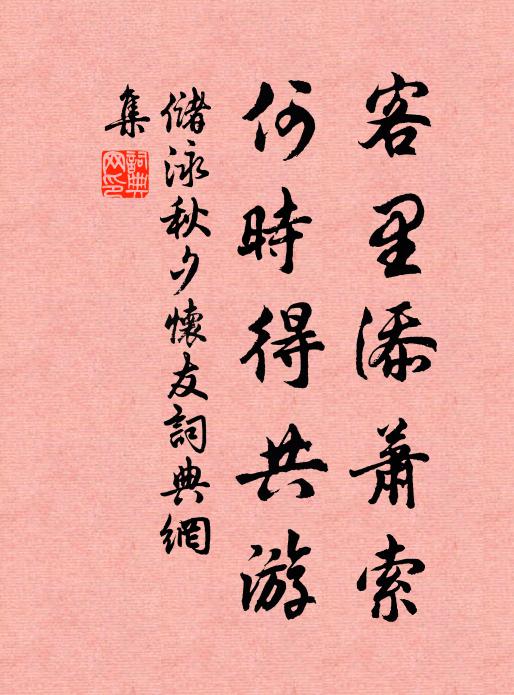 客里添蕭索
何時得共游
儲泳秋夕懷友詞典網
集
詞典
网印